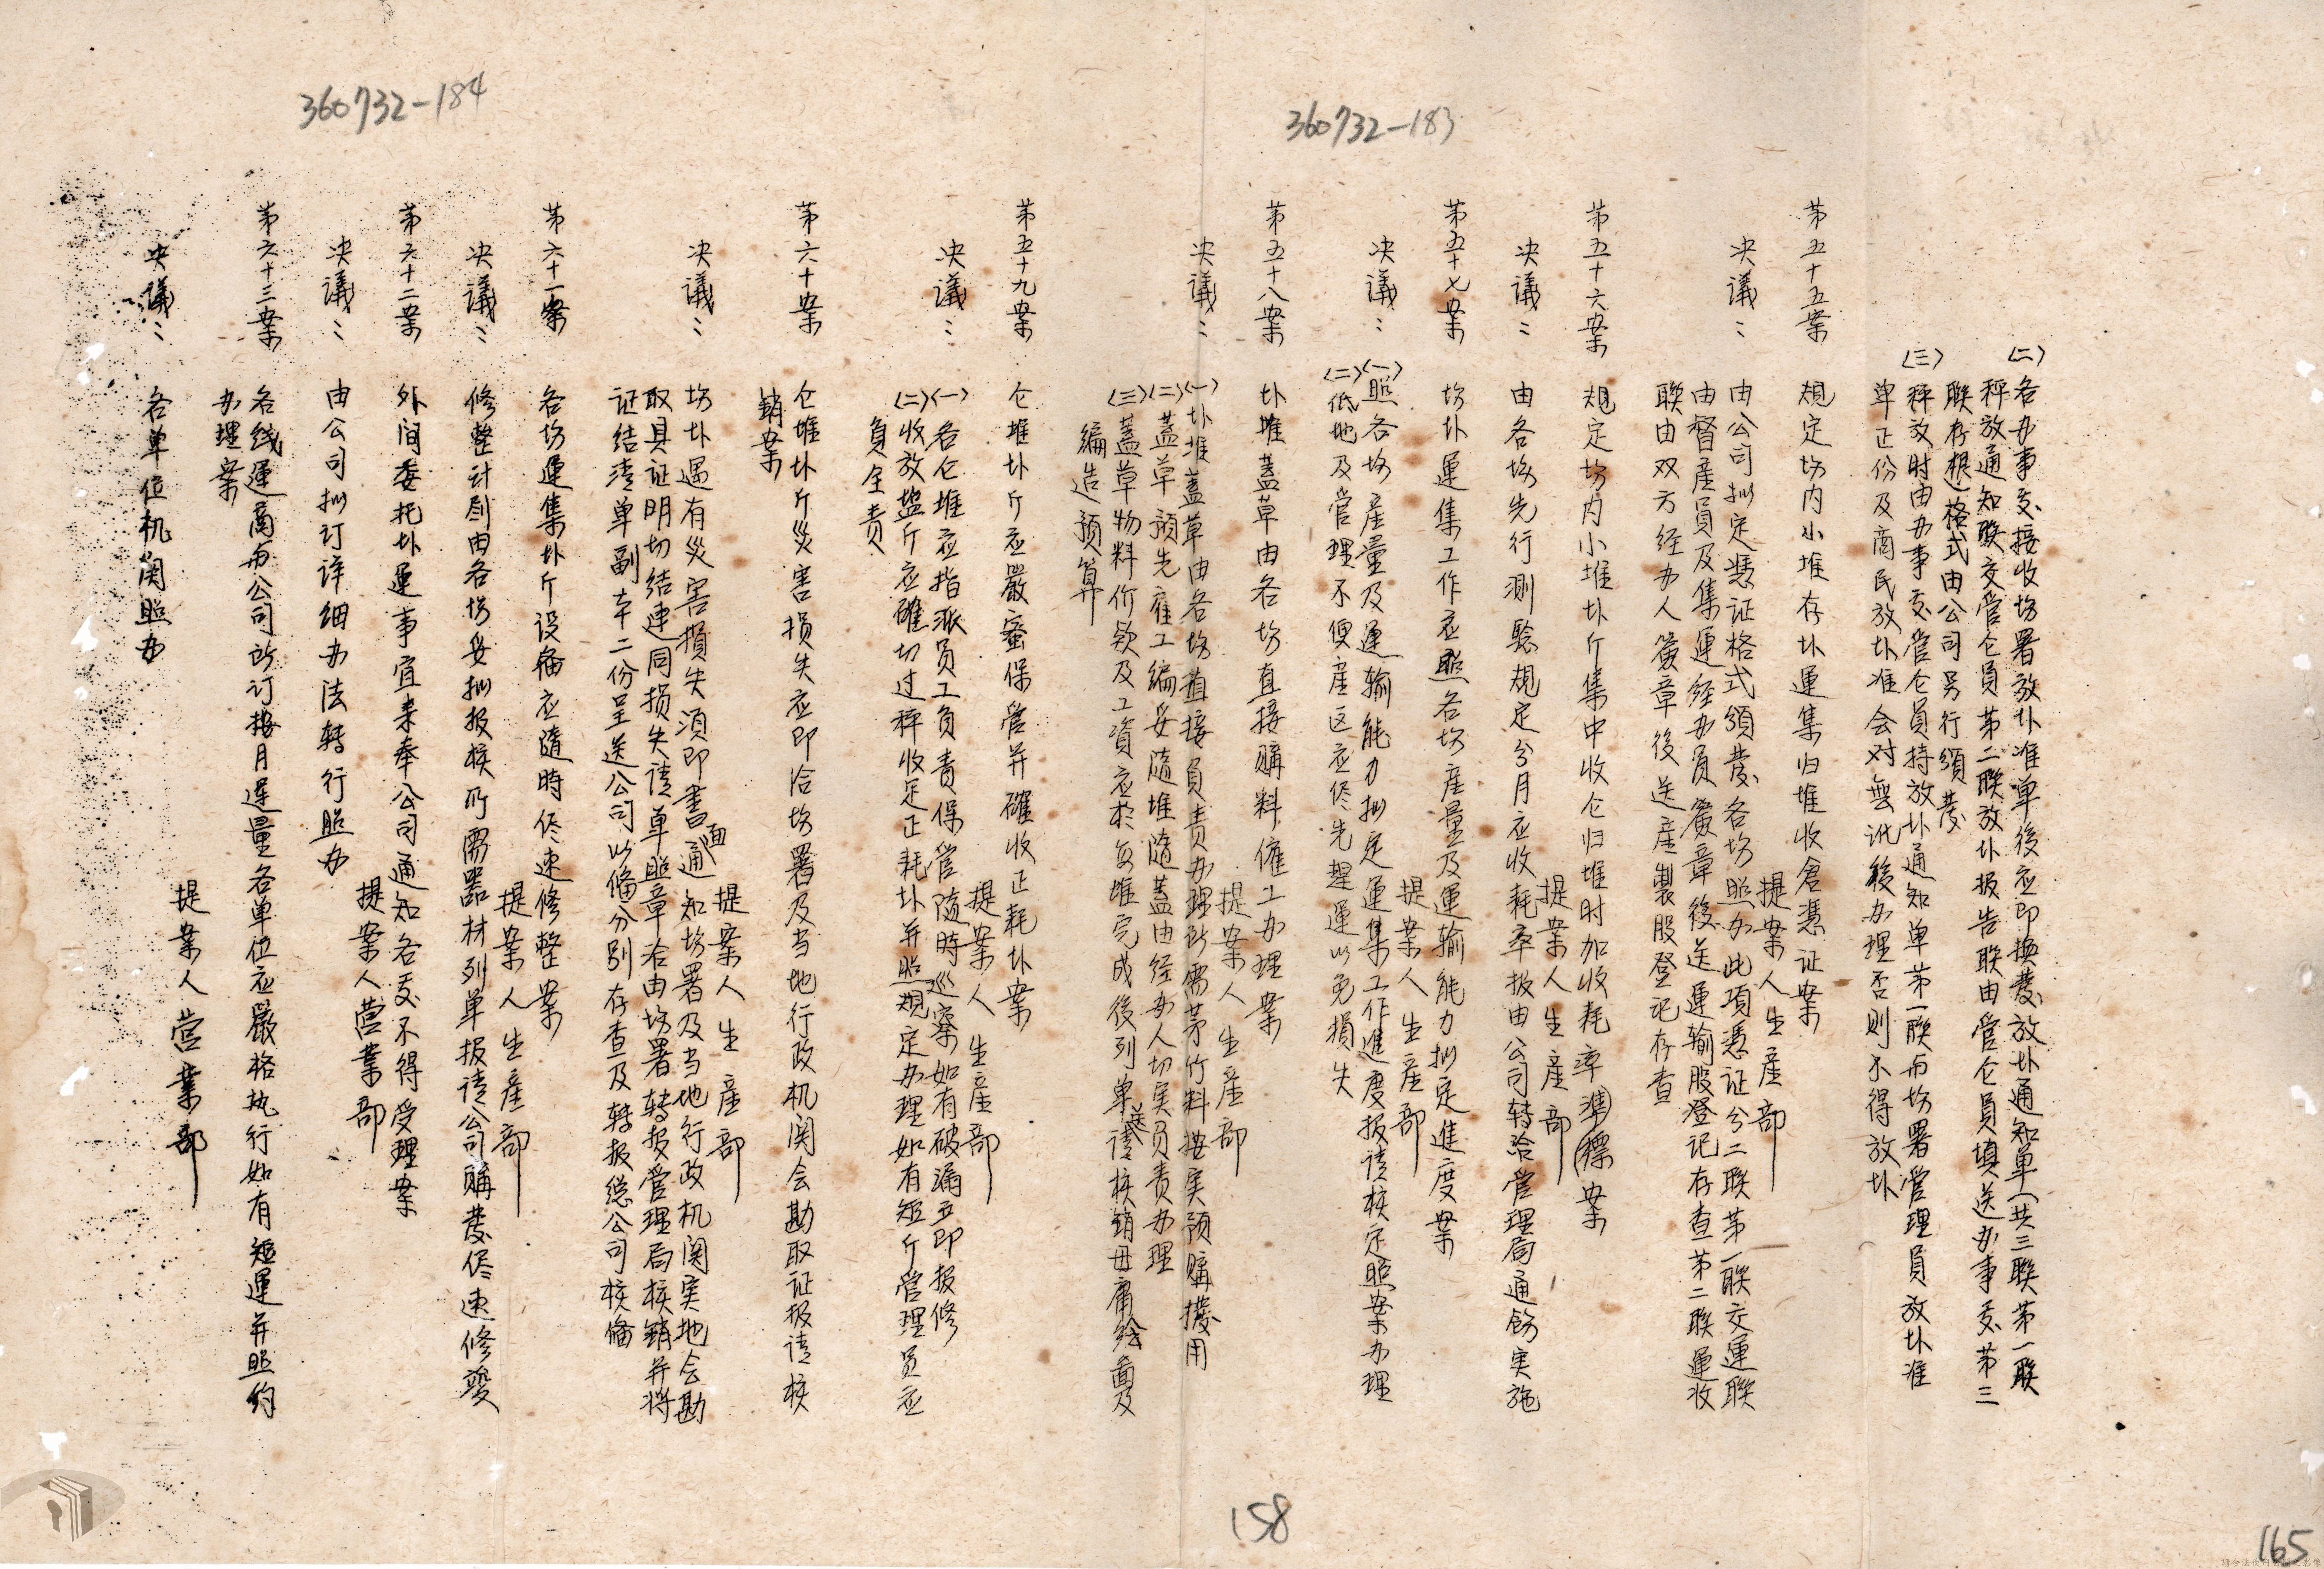 360732-183
(二)各办事处接收场署放圤准单後应即换发放圤通知单(共三联第一联
秤放通知联交管仓員第二联放圤报告联由管仓員填送办事处第三
联存根)格式由公司另行頒发
(三)秤放时由办事处管仓員持放圤通知单第一联与场署管理員放圤准
单正份及商民放圤准会对無訛後办理否则不得放圤
第五十五案
規定场内小堆存圤運集归堆收倉憑证案
提案人生産部
决議:
由公司拟定憑证格式頒发各场照办此項憑证分二联第一联交運联
由督産員及集運經办員簽章後送運输股登记存查第二联運收
联由双方经办人簽章後送産製股登记存查
第五十六案
規定场内小堆圤斤集中收仓归堆时加收耗率準標案
提案人生産部
决議:
由各场先行測驗規定分月应收耗率报由公司转洽管理局通飭実施
第五十七案
场圤運集工作应照各场産量及運输能力拟定進度案
提案人生産部
决議:
(一)照各场産量及運输能力拟定運集工作進度报请核定照案办理
(二)低地及管理不便産区应侭先趕運以免損失
第五十八案
圤堆蓋草由各场直接購料僱工办理案
提案人生産部
决議:
(一)圤堆蓋草由各场直接負责办理所需茅竹料按実预購撥用
(二)蓋草預先雇工编妥隨堆隨蓋由经办人切実負责办理
(三)蓋草物料价欵及工資应於每堆完成後列单送请核銷毋庸绘畵及
编造预算
第五十九案
仓堆圤斤应嚴蜜保管并確收正耗圤案
提案人生産部
决議:
(一)各仓堆应指派員工负责保管隨時巡察如有破漏立即报修
(二)收放盐斤应確切过秤收足正耗圤并照規定办理如有短斤管理員应
負全责
360732-184
第六十案
仓堆圤斤災害損失应即洽场署及当地行政机関会勘取证报请核
銷案
提案人生産部
决議:
场圤遇有災害損失須即書面通知场署及当地行政机関実地会勘
取具证明切結連同損失请单照章洽由场署转报管理局核銷并将
证结清单副本二份呈送公司以俻分别存查及转报總公司核俻
第六十一案
各场運集圤斤设俻应隨時侭速修整案
提案人生産部
决議:
修整计劃由各场妥拟报核所需器材列单报请公司購发侭速修竣
第六十二案
外间委托圤運事宜未奉公司通知各处不得受理案
提案人營業部
决議:
由公司拟订详细办法转行照办
第六十三案
各线運商与公司所订按月運量各单位应嚴格执行如有短運并照约
办理案
提案人営業部
决議:
各单位机関照办
158
165